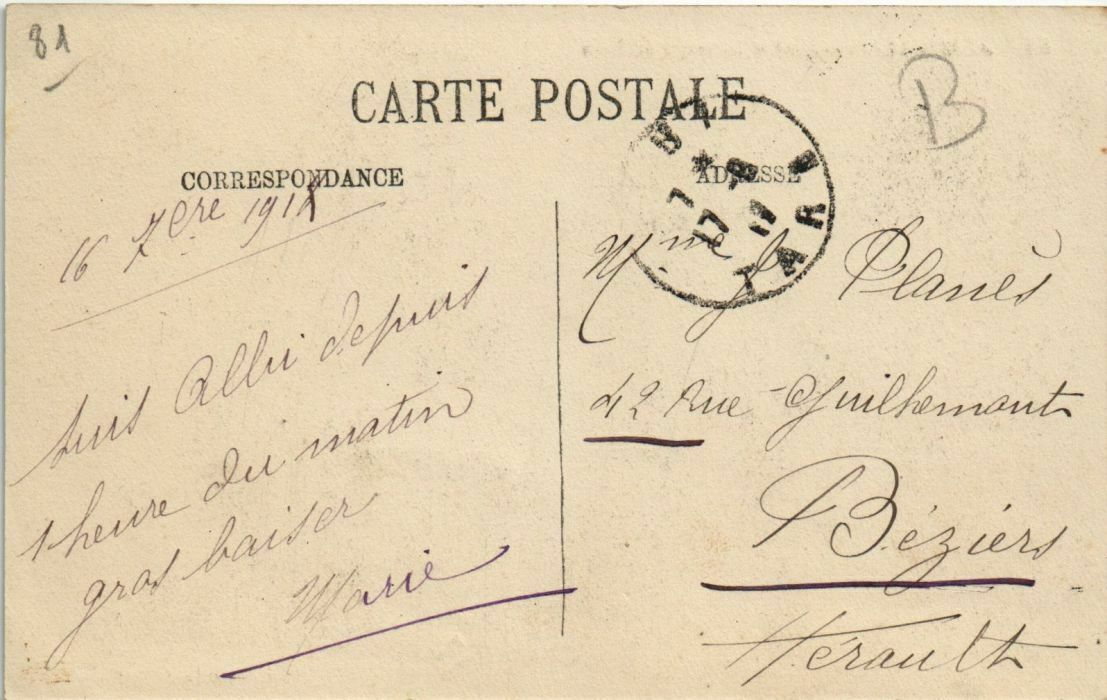 81
B
CARTE POSTALE
CORRESPONDANCE
ADRESSE
TARN
16 7bre
suis Albi depuis
1 heure du matin
gros baiser
Marie
Mme Planès
42 rue Guilhemont
Béziers
Hérault